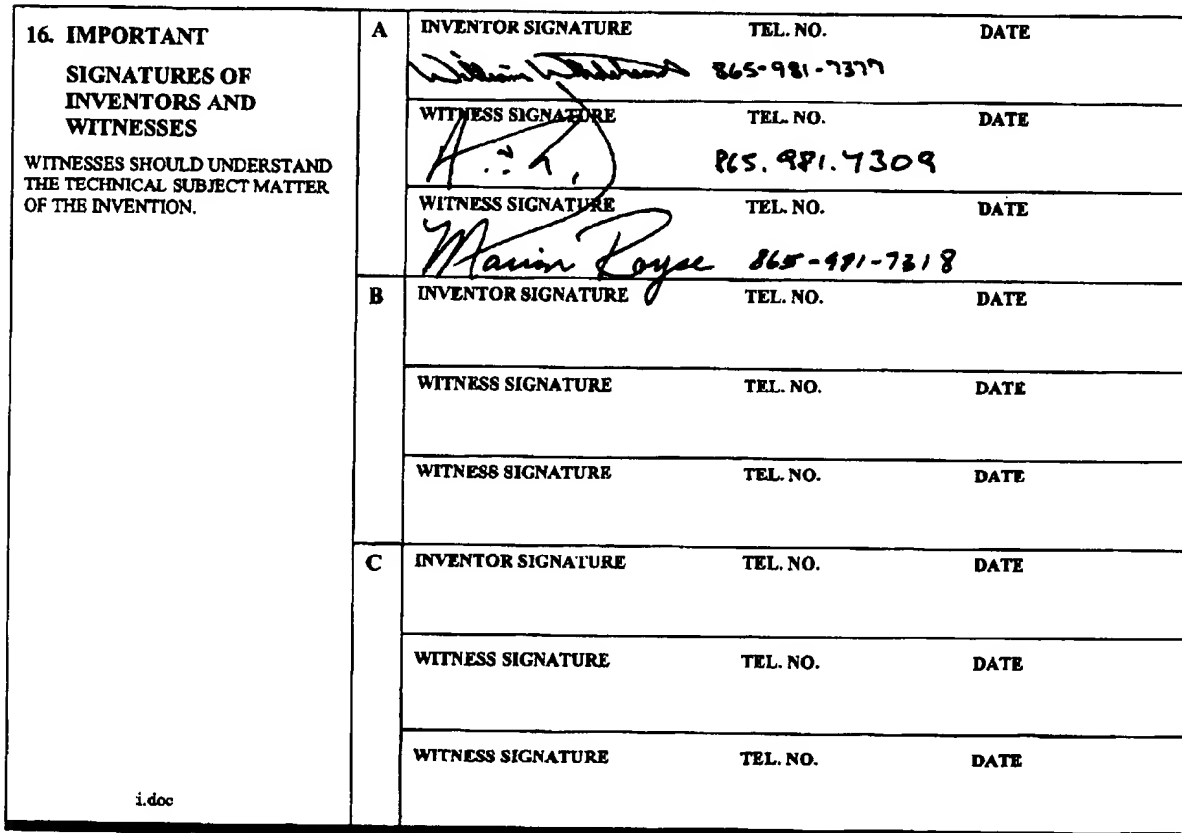 16. IMPORTANT
SIGNATURES OF
INVENTORS AND
WITNESSES
WITNESSES SHOULD UNDERSTAND
THE TECHNICAL SUBJECT MATTER
OF THE INVENTION.
i.doc
A INVENTOR SIGNATURE TEL. NO. DATE
William 865-981-7377
WITNESS SIGNATURE TEL. NO. DATE
865.981.7309
WITNESS SIGNATURE TEL. NO. DATE
Marion Royse 865-981-7318
B INVENTOR SIGNATURE TEL. NO. DATE
WITNESS SIGNATURE TEL. NO. DATE
WITNESS SIGNATURE TEL. NO. DATE
C INVENTOR SIGNATURE TEL. NO. DATE
WITNESS SIGNATURE TEL. NO. DATE
WITNESS SIGNATURE TEL. NO. DATE